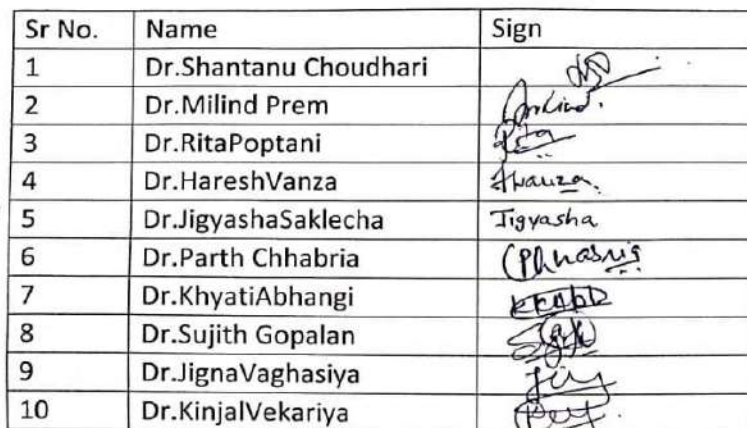 Sr No. Name Sign
1 Dr.Shantanu Choudhari
2 Dr.Milind Prem
3 Dr.RitaPoptani Rita
4 Dr.HareshVanza
5 Dr.JigyashaSaklecha Jigyasha
6 Dr.Parth Chhabria
7 Dr.KhyatiAbhangi
8 Dr.Sujith Gopalan
9 Dr.JignaVaghasiya
10 Dr.KinjalVekariya